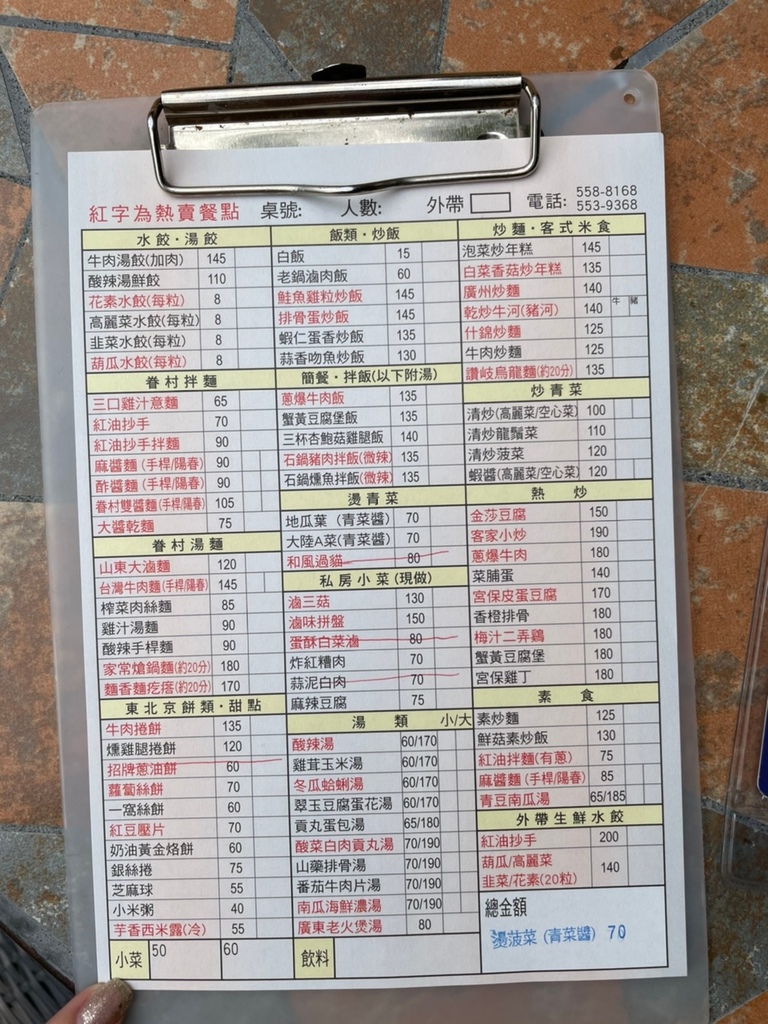 紅字為熱賣餐點 桌號: 人數: 外帶 電話: 558-8168
553-9368
水餃·湯餃
牛肉湯餃(加肉) 145
酸辣湯鮮餃 110
花素水餃(每粒) 8
高麗菜水餃(每粒) 8
韭菜水餃(每粒) 8
葫瓜水餃(每粒) 8
眷村拌麵
三口雞汁意麵 65
紅油抄手 70
紅油抄手拌麵 90
麻醬麵(手桿/陽春) 90
酢醬麵(手桿/陽春) 90
眷村雙醬麵(手桿/陽春) 105
大醬乾麵 75
眷村湯麵
山東大滷麵 120
台灣牛肉麵(手桿/陽春) 145
榨菜肉絲麵 85
雞汁湯麵 90
酸辣手桿麵 90
家常熗鍋麵(約20分) 180
麵香麵疙瘩(約20分) 170
東北京餅類·甜點
牛肉捲餅 135
燻雞腿捲餅 120
招牌蔥油餅 60
蘿蔔絲餅 70
一窩絲餅 60
紅豆壓片 70
奶油黃金烙餅 60
銀絲捲 75
芝麻球 55
小米粥 40
芋香西米露(冷) 55
小菜 50 60
飯類·炒飯
白飯 15
老鍋滷肉飯 60
鮭魚雞粒炒飯 145
排骨蛋炒飯 145
蝦仁蛋香炒飯 135
蒜香吻魚炒飯 130
簡餐·拌飯(以下附湯)
蔥爆牛肉飯 135
蟹黃豆腐堡飯 135
三杯杏鮑菇雞腿飯 140
石鍋豬肉拌飯(微辣) 135
石鍋燻魚拌飯(微辣) 135
燙青菜
地瓜葉(青菜醬) 70
大陸A菜(青菜醬) 70
和風過貓 80
私房小菜(現做)
滷三菇 130
滷味拼盤 150
蛋酥白菜滷 80
炸紅糟肉 70
蒜泥白肉 70
麻辣豆腐 75
湯類 小/大
酸辣湯 60/170
雞茸玉米湯 60/170
冬瓜蛤蜊湯 60/170
翠玉豆腐蛋花湯 60/170
貢丸蛋包湯 65/180
酸菜白肉貢丸湯 70/190
山藥排骨湯 70/190
番茄牛肉片湯 70/190
南瓜海鮮濃湯 70/190
廣東老火煲湯 80
飲料
炒麵·客式米食
泡菜炒年糕 145
白菜香菇炒年糕 135
廣州炒麵 140
乾炒牛河(豬河) 140 牛 豬
什錦炒麵 125
牛肉炒麵 125
讚岐烏龍麵(約20分) 135
炒青菜
清炒(高麗菜/空心菜) 100
清炒龍鬚菜 110
清炒菠菜 120
蝦醬(高麗菜/空心菜) 120
熱炒
金莎豆腐 150
客家小炒 190
蔥爆牛肉 180
菜脯蛋 140
宮保皮蛋豆腐 170
香橙排骨 180
梅汁二弄鷄 180
蟹黃豆腐堡 180
宮保雞丁 180
素食
素炒麵 125
鮮菇素炒飯 130
紅油拌麵(有蔥) 75
麻醬麵(手桿/陽春) 85
青豆南瓜湯 65/185
外帶生鮮水餃
紅油抄手 200
葫瓜/高麗菜
韭菜/花素(20粒) 140
總金額
燙菠菜(青菜醬) 70